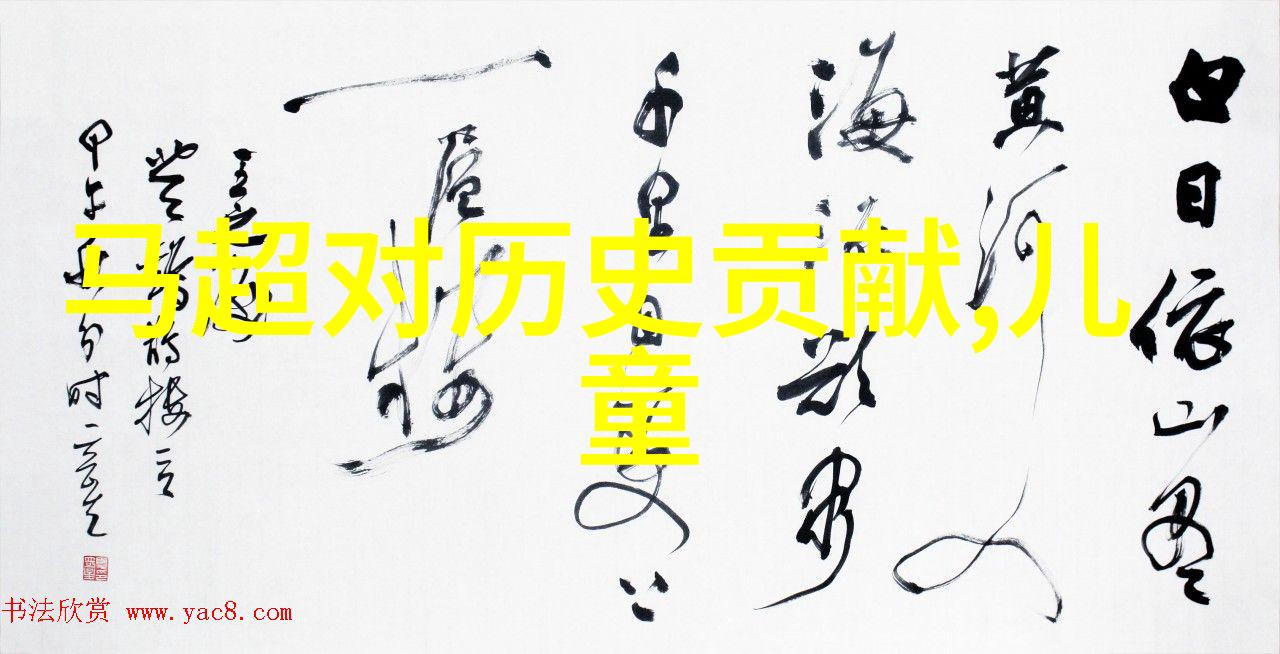 马超对历史贡献,儿
童
白日依山尽
黄河入
海流欲穷
千里目更上
一层楼
王之涣
甲午秋分时
书法欣赏 www.yac8.com